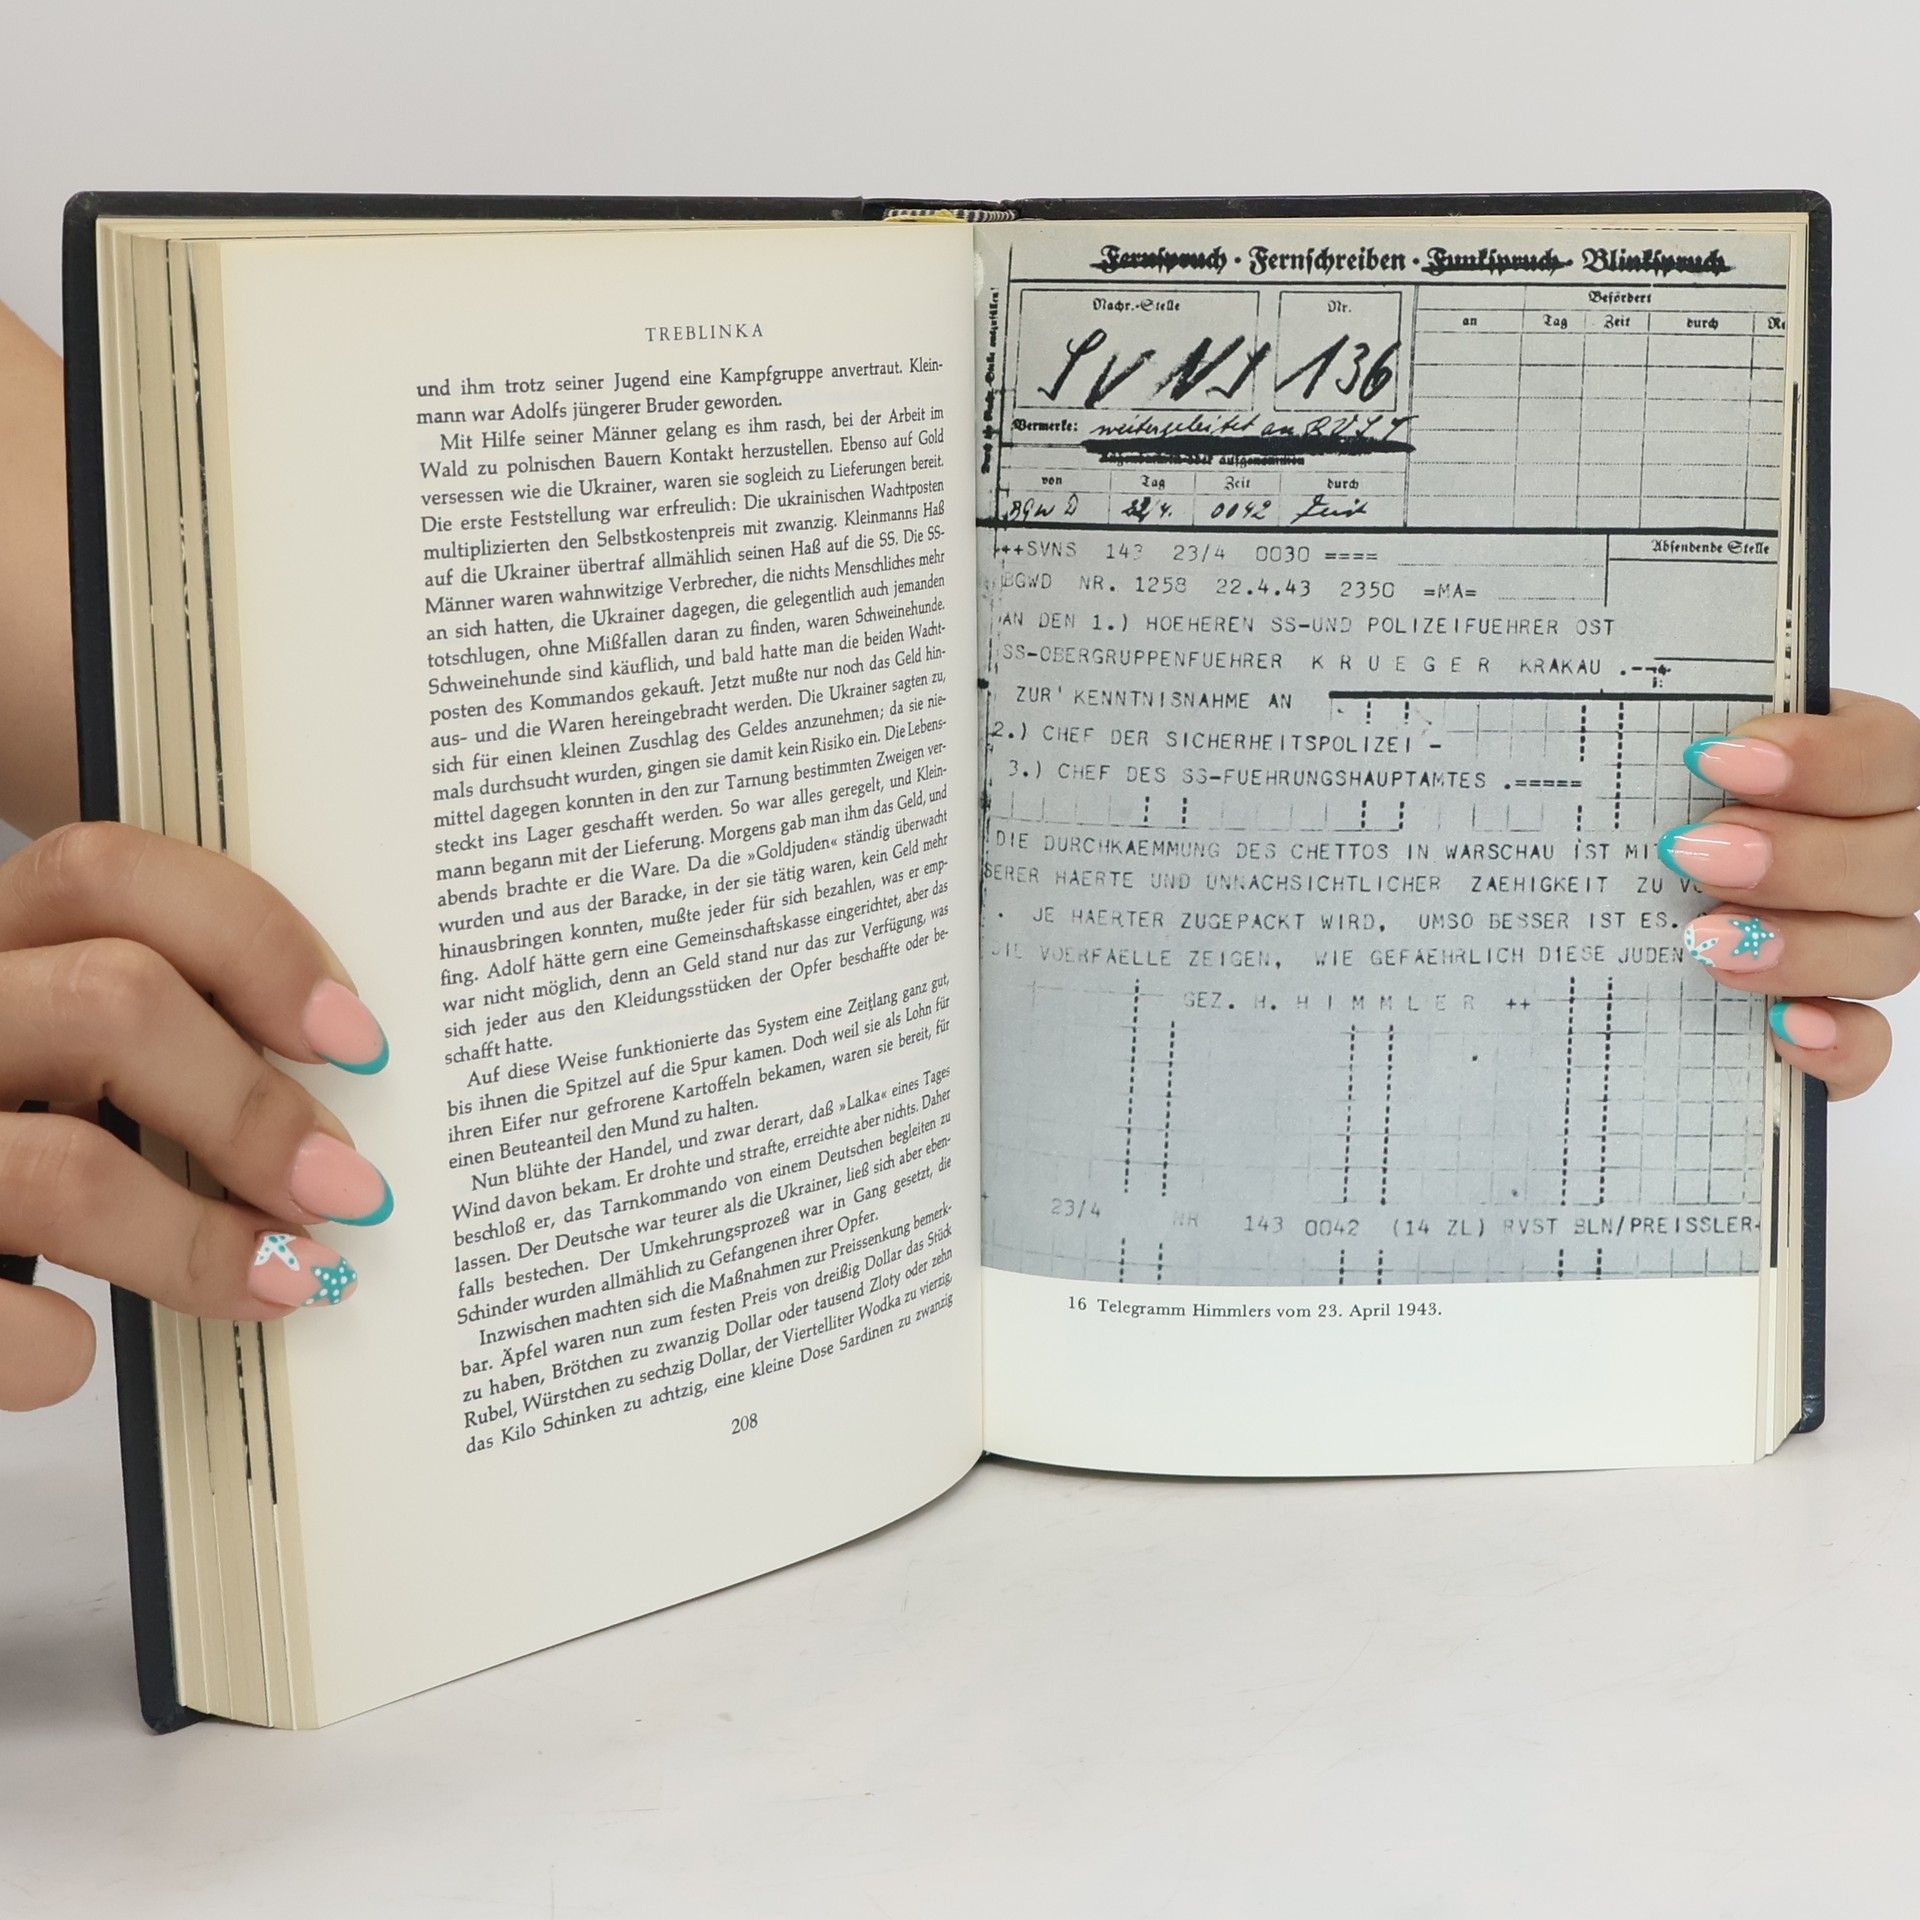 TREBLINKA
und ihm trotz seiner Jugend eine Kampfgruppe anvertraut. Klein-
mann war Adolfs jüngerer Bruder geworden.
Mit Hilfe seiner Männer gelang es ihm rasch, bei der Arbeit im
Wald zu polnischen Bauern Kontakt herzustellen. Ebenso auf Gold
versessen wie die Ukrainer, waren sie sogleich zu Lieferungen bereit.
Die erste Feststellung war erfreulich: Die ukrainischen Wachtposten
multiplizierten den Selbstkostenpreis mit zwanzig. Kleinmanns Haß
auf die Ukrainer übertraf allmählich seinen Haß auf die SS. Die SS-
Männer waren wahnwitzige Verbrecher, die nichts Menschliches mehr
an sich hatten, die Ukrainer dagegen, die gelegentlich auch jemanden
totschlugen, ohne Mißfallen daran zu finden, waren Schweinehunde.
Schweinehunde sind käuflich, und bald hatte man die beiden Wacht-
posten des Kommandos gekauft. Jetzt mußte nur noch das Geld hin-
aus- und die Waren hereingebracht werden. Die Ukrainer sagten zu,
sich für einen kleinen Zuschlag des Geldes anzunehmen; da sie nie-
mals durchsucht wurden, gingen sie damit kein Risiko ein. Die Lebens-
mittel dagegen konnten in den zur Tarnung bestimmten Zweigen ver-
steckt ins Lager geschafft werden. So war alles geregelt, und Klein-
mann begann mit der Lieferung. Morgens gab man ihm das Geld, und
abends brachte er die Ware. Da die »Goldjuden« ständig überwacht
wurden und aus der Baracke, in der sie tätig waren, kein Geld mehr
hinausbringen konnten, mußte jeder für sich bezahlen, was er emp-
fing. Adolf hätte gern eine Gemeinschaftskasse eingerichtet, aber das
war nicht möglich, denn an Geld stand nur das zur Verfügung, was
sich jeder aus den Kleidungsstücken der Opfer beschaffte oder be-
schafft hatte.
Auf diese Weise funktionierte das System eine Zeitlang ganz gut,
bis ihnen die Spitzel auf die Spur kamen. Doch weil sie als Lohn für
ihren Eifer nur gefrorene Kartoffeln bekamen, waren sie bereit, für
einen Beuteanteil den Mund zu halten.
Nun blühte der Handel, und zwar derart, daß »Lalka« eines Tages
Wind davon bekam. Er drohte und strafte, erreichte aber nichts. Daher
beschloß er, das Tarnkommando von einem Deutschen begleiten zu
lassen. Der Deutsche war teurer als die Ukrainer, ließ sich aber eben-
falls bestechen. Der Umkehrungsprozeß war in Gang gesetzt, die
Schinder wurden allmählich zu Gefangenen ihrer Opfer.
Inzwischen machten sich die Maßnahmen zur Preissenkung bemerk-
bar. Äpfel waren nun zum festen Preis von dreißig Dollar das Stück
zu haben, Brötchen zu zwanzig Dollar oder tausend Zloty oder zehn
Rubel, Würstchen zu sechzig Dollar, der Viertelliter Wodka zu vierzig,
das Kilo Schinken zu achtzig, eine kleine Dose Sardinen zu zwanzig
208
Fernspruch · Fernschreiben · Funkspruch · Blinkspruch
Nachr.-Stelle Nr. Befördert
an Tag Zeit durch
SVNS 136
Vermerke: weitergeleitet an RVST
von Tag Zeit durch
BGWD 22/4. 0042
Absendende Stelle
++SVNS 143 23/4 0030 ====
BGWD NR. 1258 22.4.43 2350 =MA=
AN DEN 1.) HOEHEREN SS-UND POLIZEIFUEHRER OST
SS-OBERGRUPPENFUEHRER K R U E G E R KRAKAU .--
ZUR' KENNTNISNAHME AN
2.) CHEF DER SICHERHEITSPOLIZEI -
3.) CHEF DES SS-FUEHRUNGSHAUPTAMTES .=====
DIE DURCHKAEMMUNG DES GHETTOS IN WARSCHAU IST MIT
SERER HAERTE UND UNNACHSICHTLICHER ZAEHIGKEIT ZU
. JE HAERTER ZUGEPACKT WIRD, UMSO BESSER IST ES.
DIE VOERFAELLE ZEIGEN, WIE GEFAEHRLICH DIESE JUDEN
GEZ. H. H I M M L E R ++
23/4 NR 143 0042 (14 ZL) RVST BLN/PREISSLER+
16 Telegramm Himmlers vom 23. April 1943.